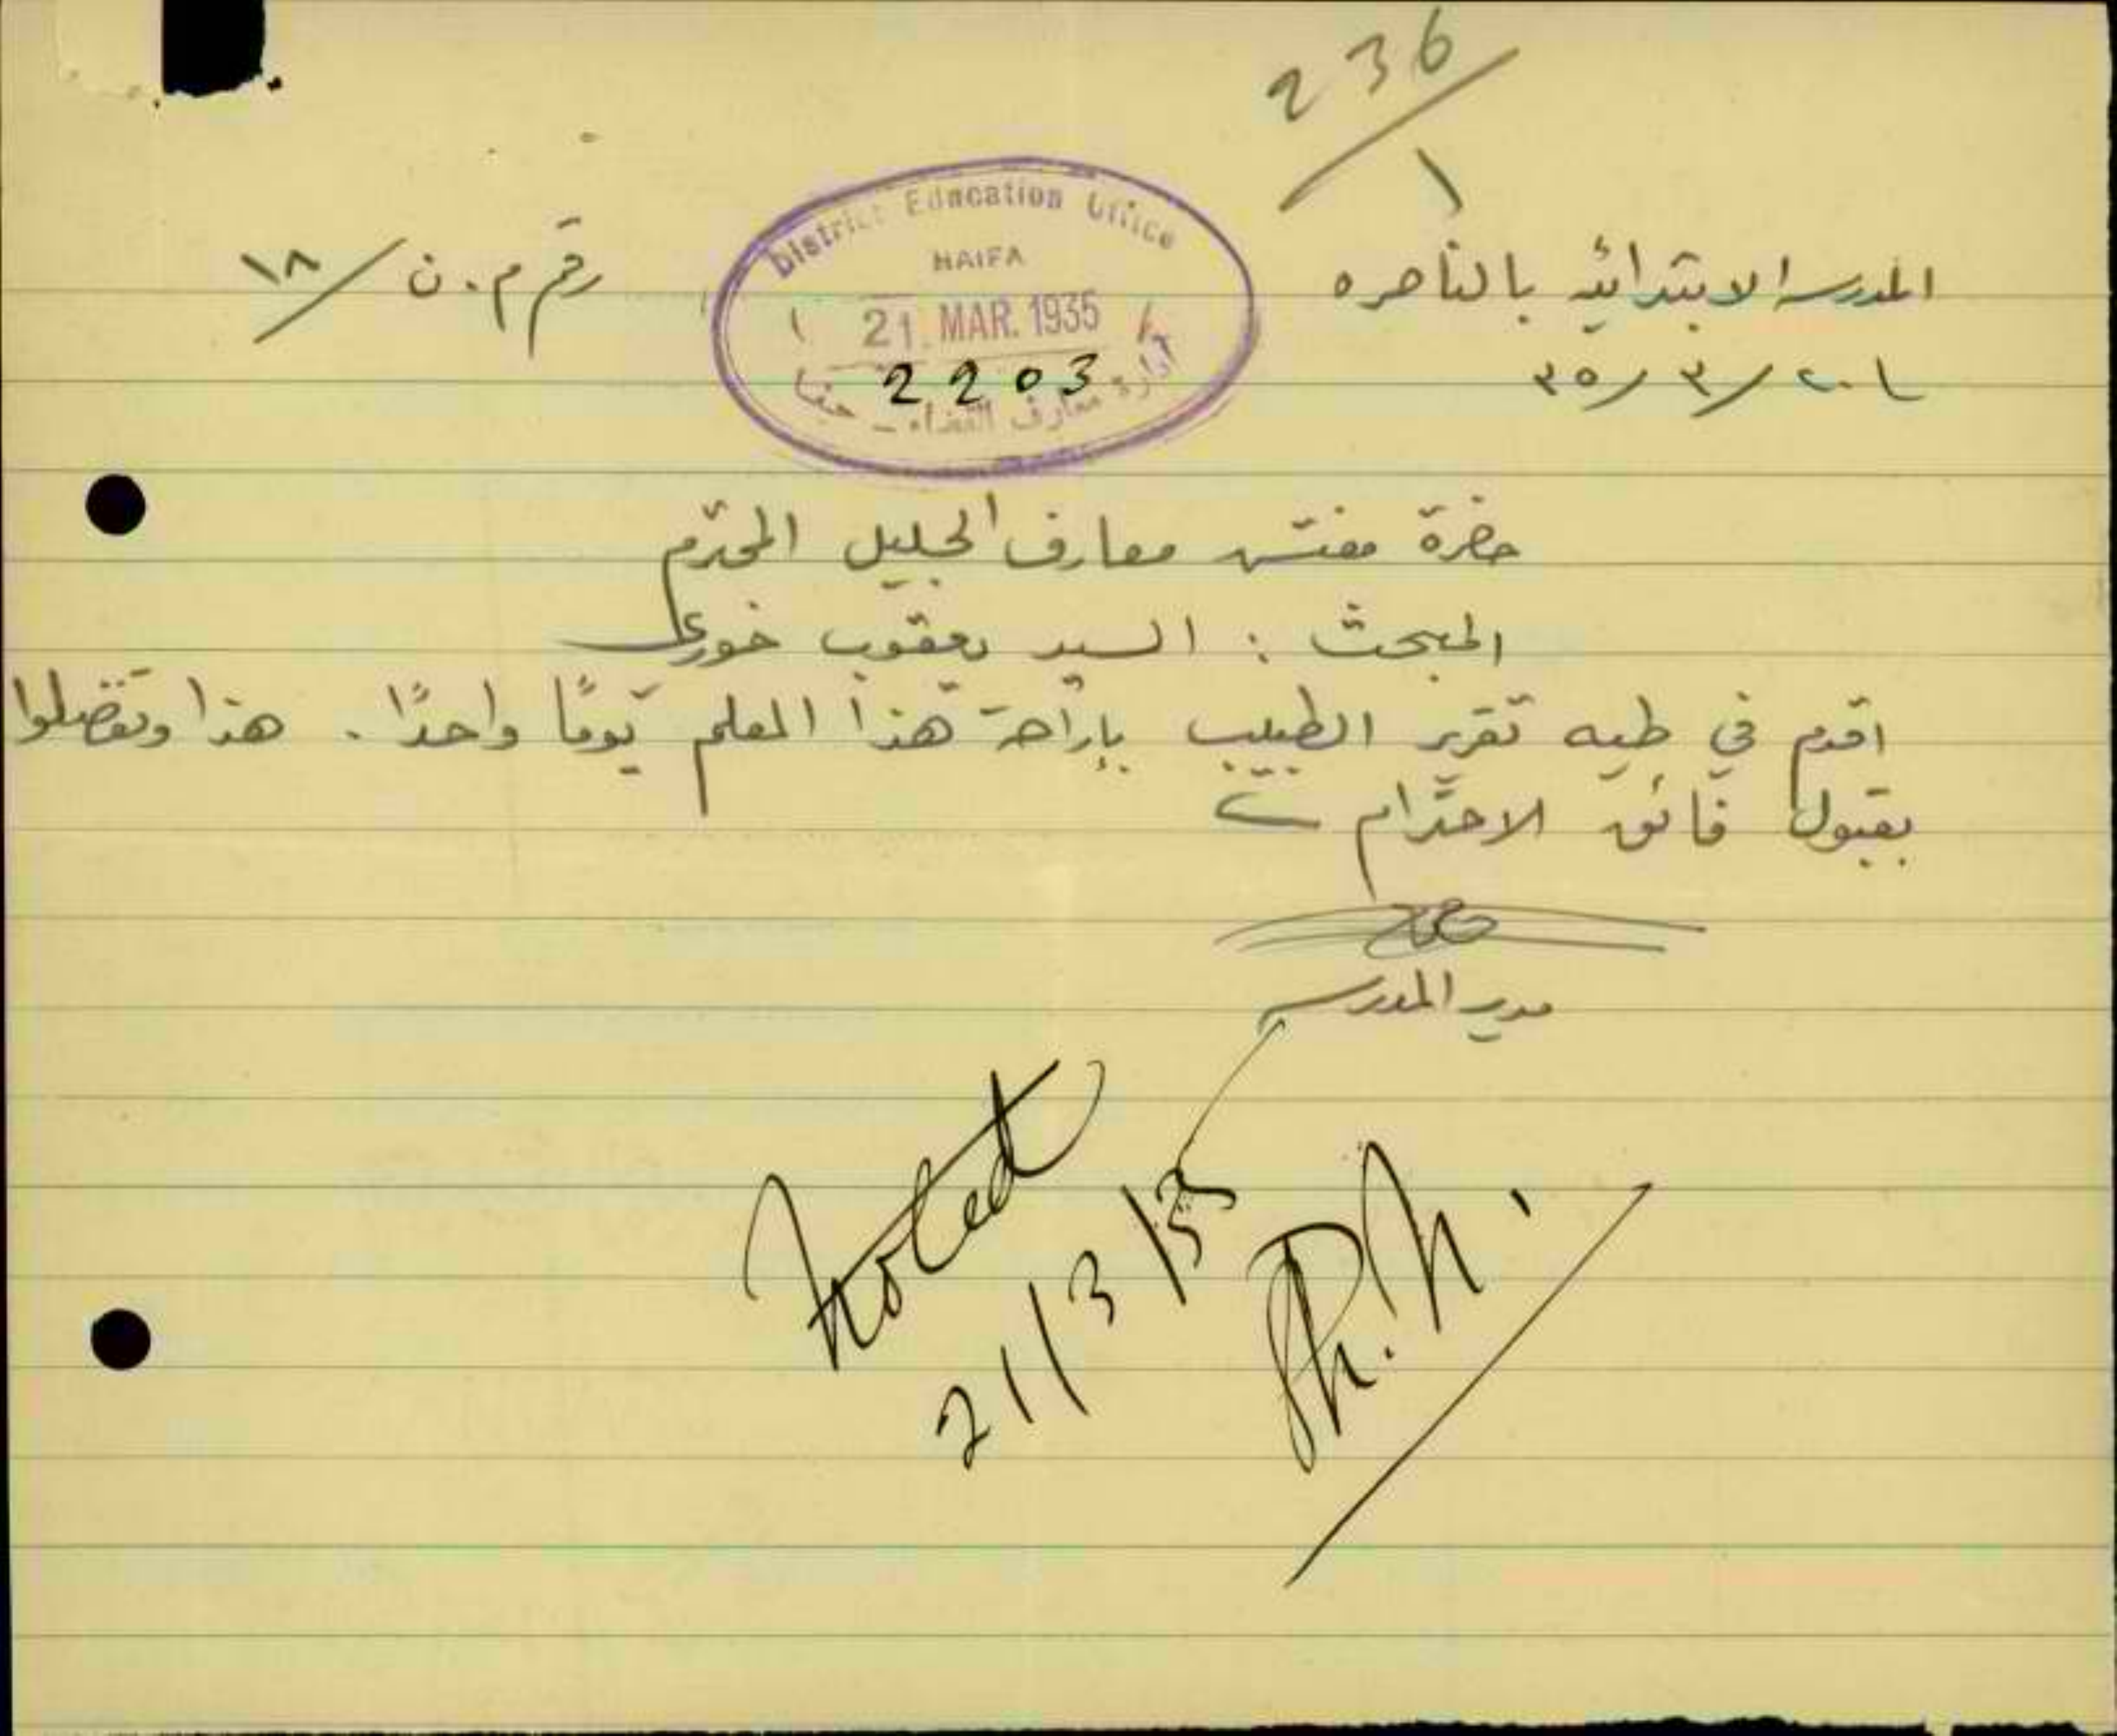 236/1
المدرسه الابتدائيه بالناصره
District Education Office
HAIFA
21. MAR. 1935
2203
ادارة معارف القضاء - حيفا
رقم م.ن/١٨
٢٠/٣/٣٥
حضرة مفتش معارف الجليل المحترم
المبحث : السيد يعقوب خوري
اقدم في طيه تقرير الطبيب بإراحة هذا المعلم يومًا واحدًا. هذا وتفضلوا
بقبول فائق الاحترام
مدير المدرسه
Noted
21/3/35